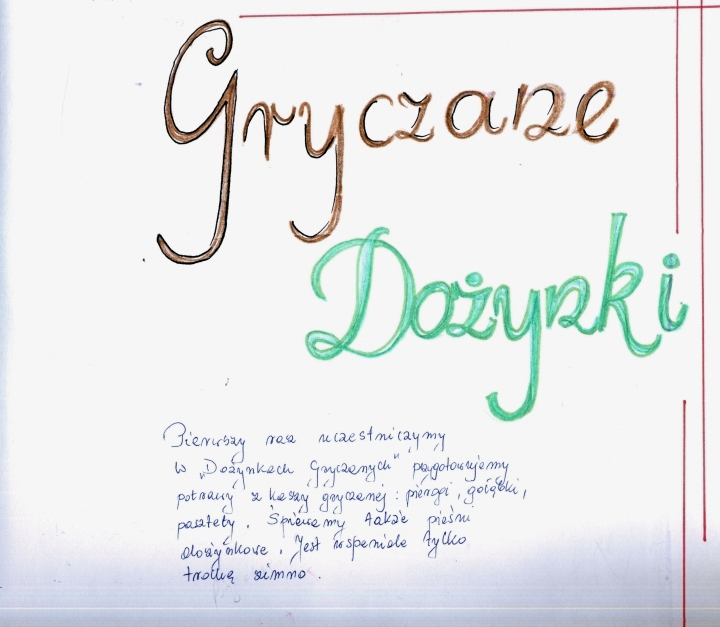 Gryczane
Dożynki
Pierwszy raz uczestniczymy
w „Dożynkach Gryczanych" przygotowujemy
potrawy z kaszy gryczanej : pierogi, gołąbki,
pasztety. Śpiewamy także pieśni
dożynkowe. Jest wspaniale tylko
trochę zimno.